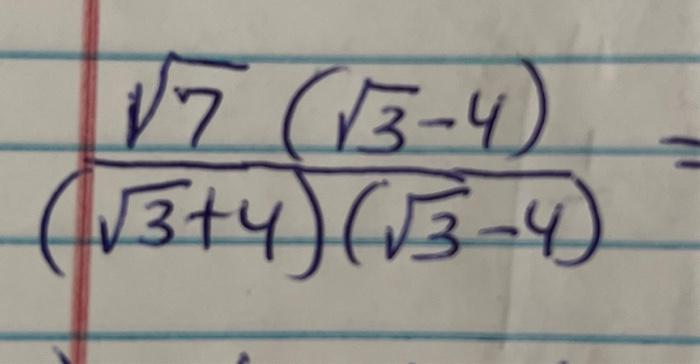 √7 (√3-4)
(√3+4)(√3-4) =